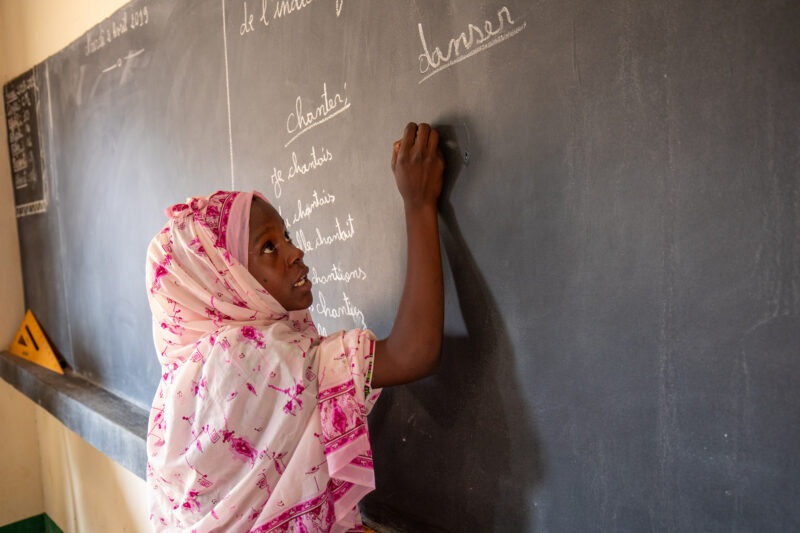 Mardi 2 Avril 2019
de l'indic
chanter;
danser
Je chantais
chantais
elle chantait
chantions
chantiez